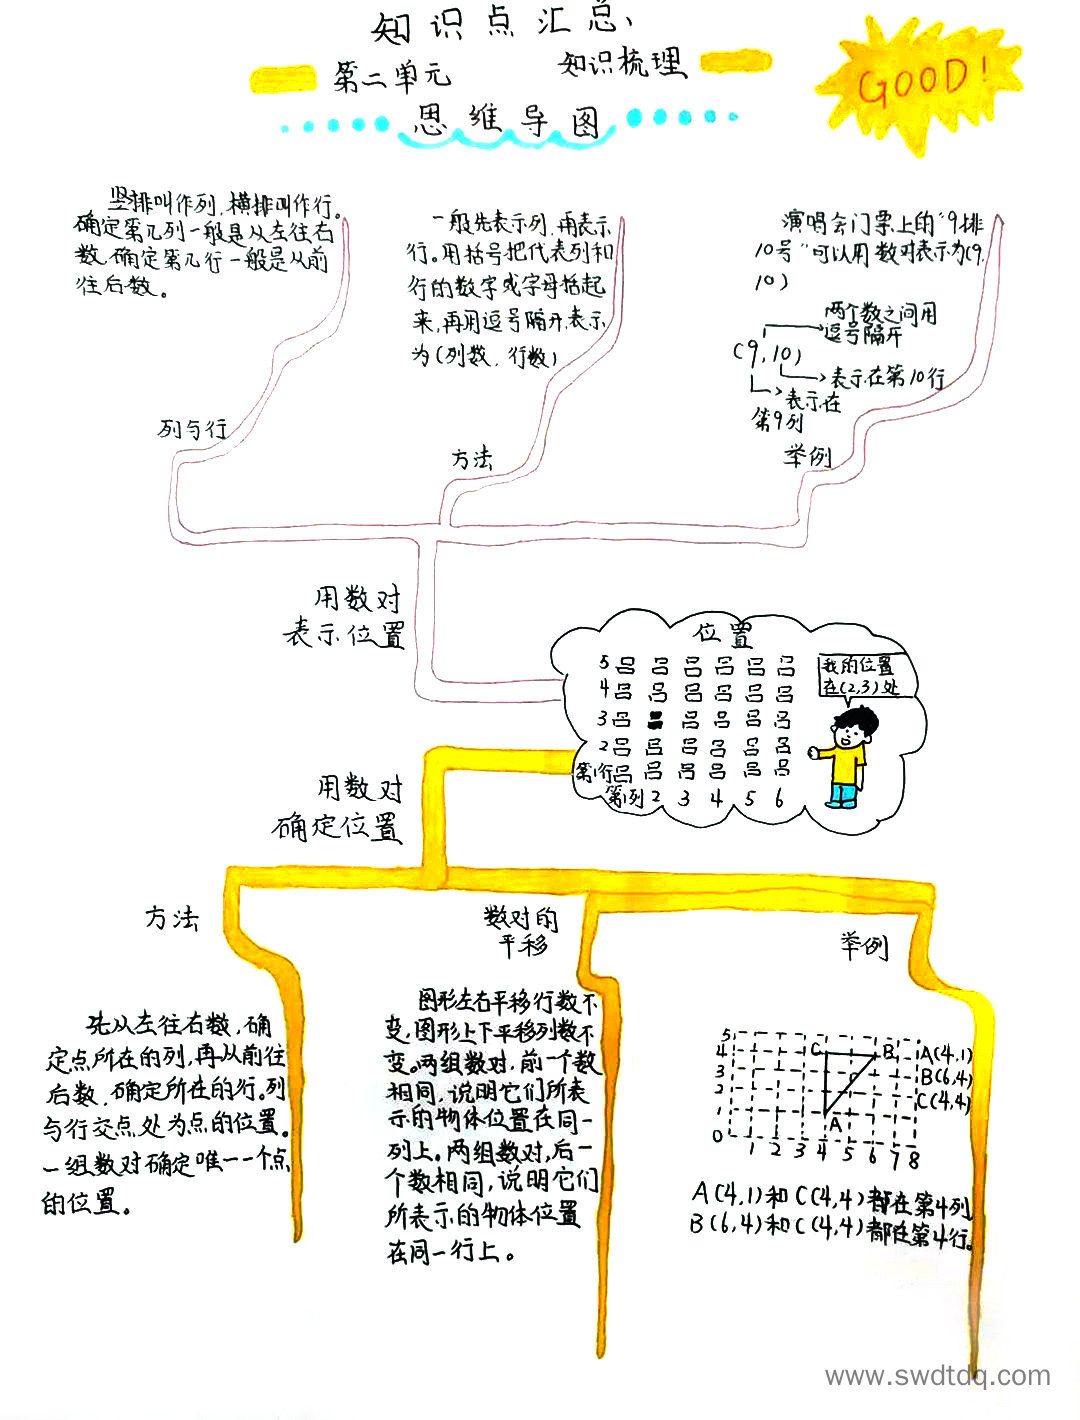 知识点汇总、
第二单元
知识梳理
思维导图
GOOD!
竖排叫作列,横排叫作行。
确定第几列一般是从左往右
数,确定第几行一般是从前
往后数。
列与行
一般先表示列,再表示
行。用括号把代表列和
行的数字或字母括起
来,再用逗号隔开,表示
为(列数,行数)
方法
演唱会门票上的“9排
10号”可以用数对表示为(9,
10)
两个数之间用
逗号隔开
(9,10)
表示在第10行
表示在
第9列
举例
用数对
表示位置
位置
5 吕 吕 吕 吕 吕 吕
4 吕 吕 吕 吕 吕 吕
3 吕 吕 吕 吕 吕 吕
2 吕 吕 吕 吕 吕 吕
第1行 吕 吕 吕 吕 吕 吕
第1列 2 3 4 5 6
我的位置
在(2,3)处
用数对
确定位置
方法
先从左往右数,确
定点所在的列,再从前往
后数,确定所在的行。列
与行交点处为点的位置。
一组数对确定唯一一个点
的位置。
数对的
平移
图形左右平移行数不
变,图形上下平移列数不
变。两组数对,前一个数
相同,说明它们所表
示的物体位置在同一
列上。两组数对,后一
个数相同,说明它们
所表示的物体位置
在同一行上。
举例
5
4
3
2
1
0
1 2 3 4 5 6 7 8
C
B
A
A(4,1)
B(6,4)
C(4,4)
A(4,1)和C(4,4)都在第4列
B(6,4)和C(4,4)都在第4行。
www.swdtdq.com